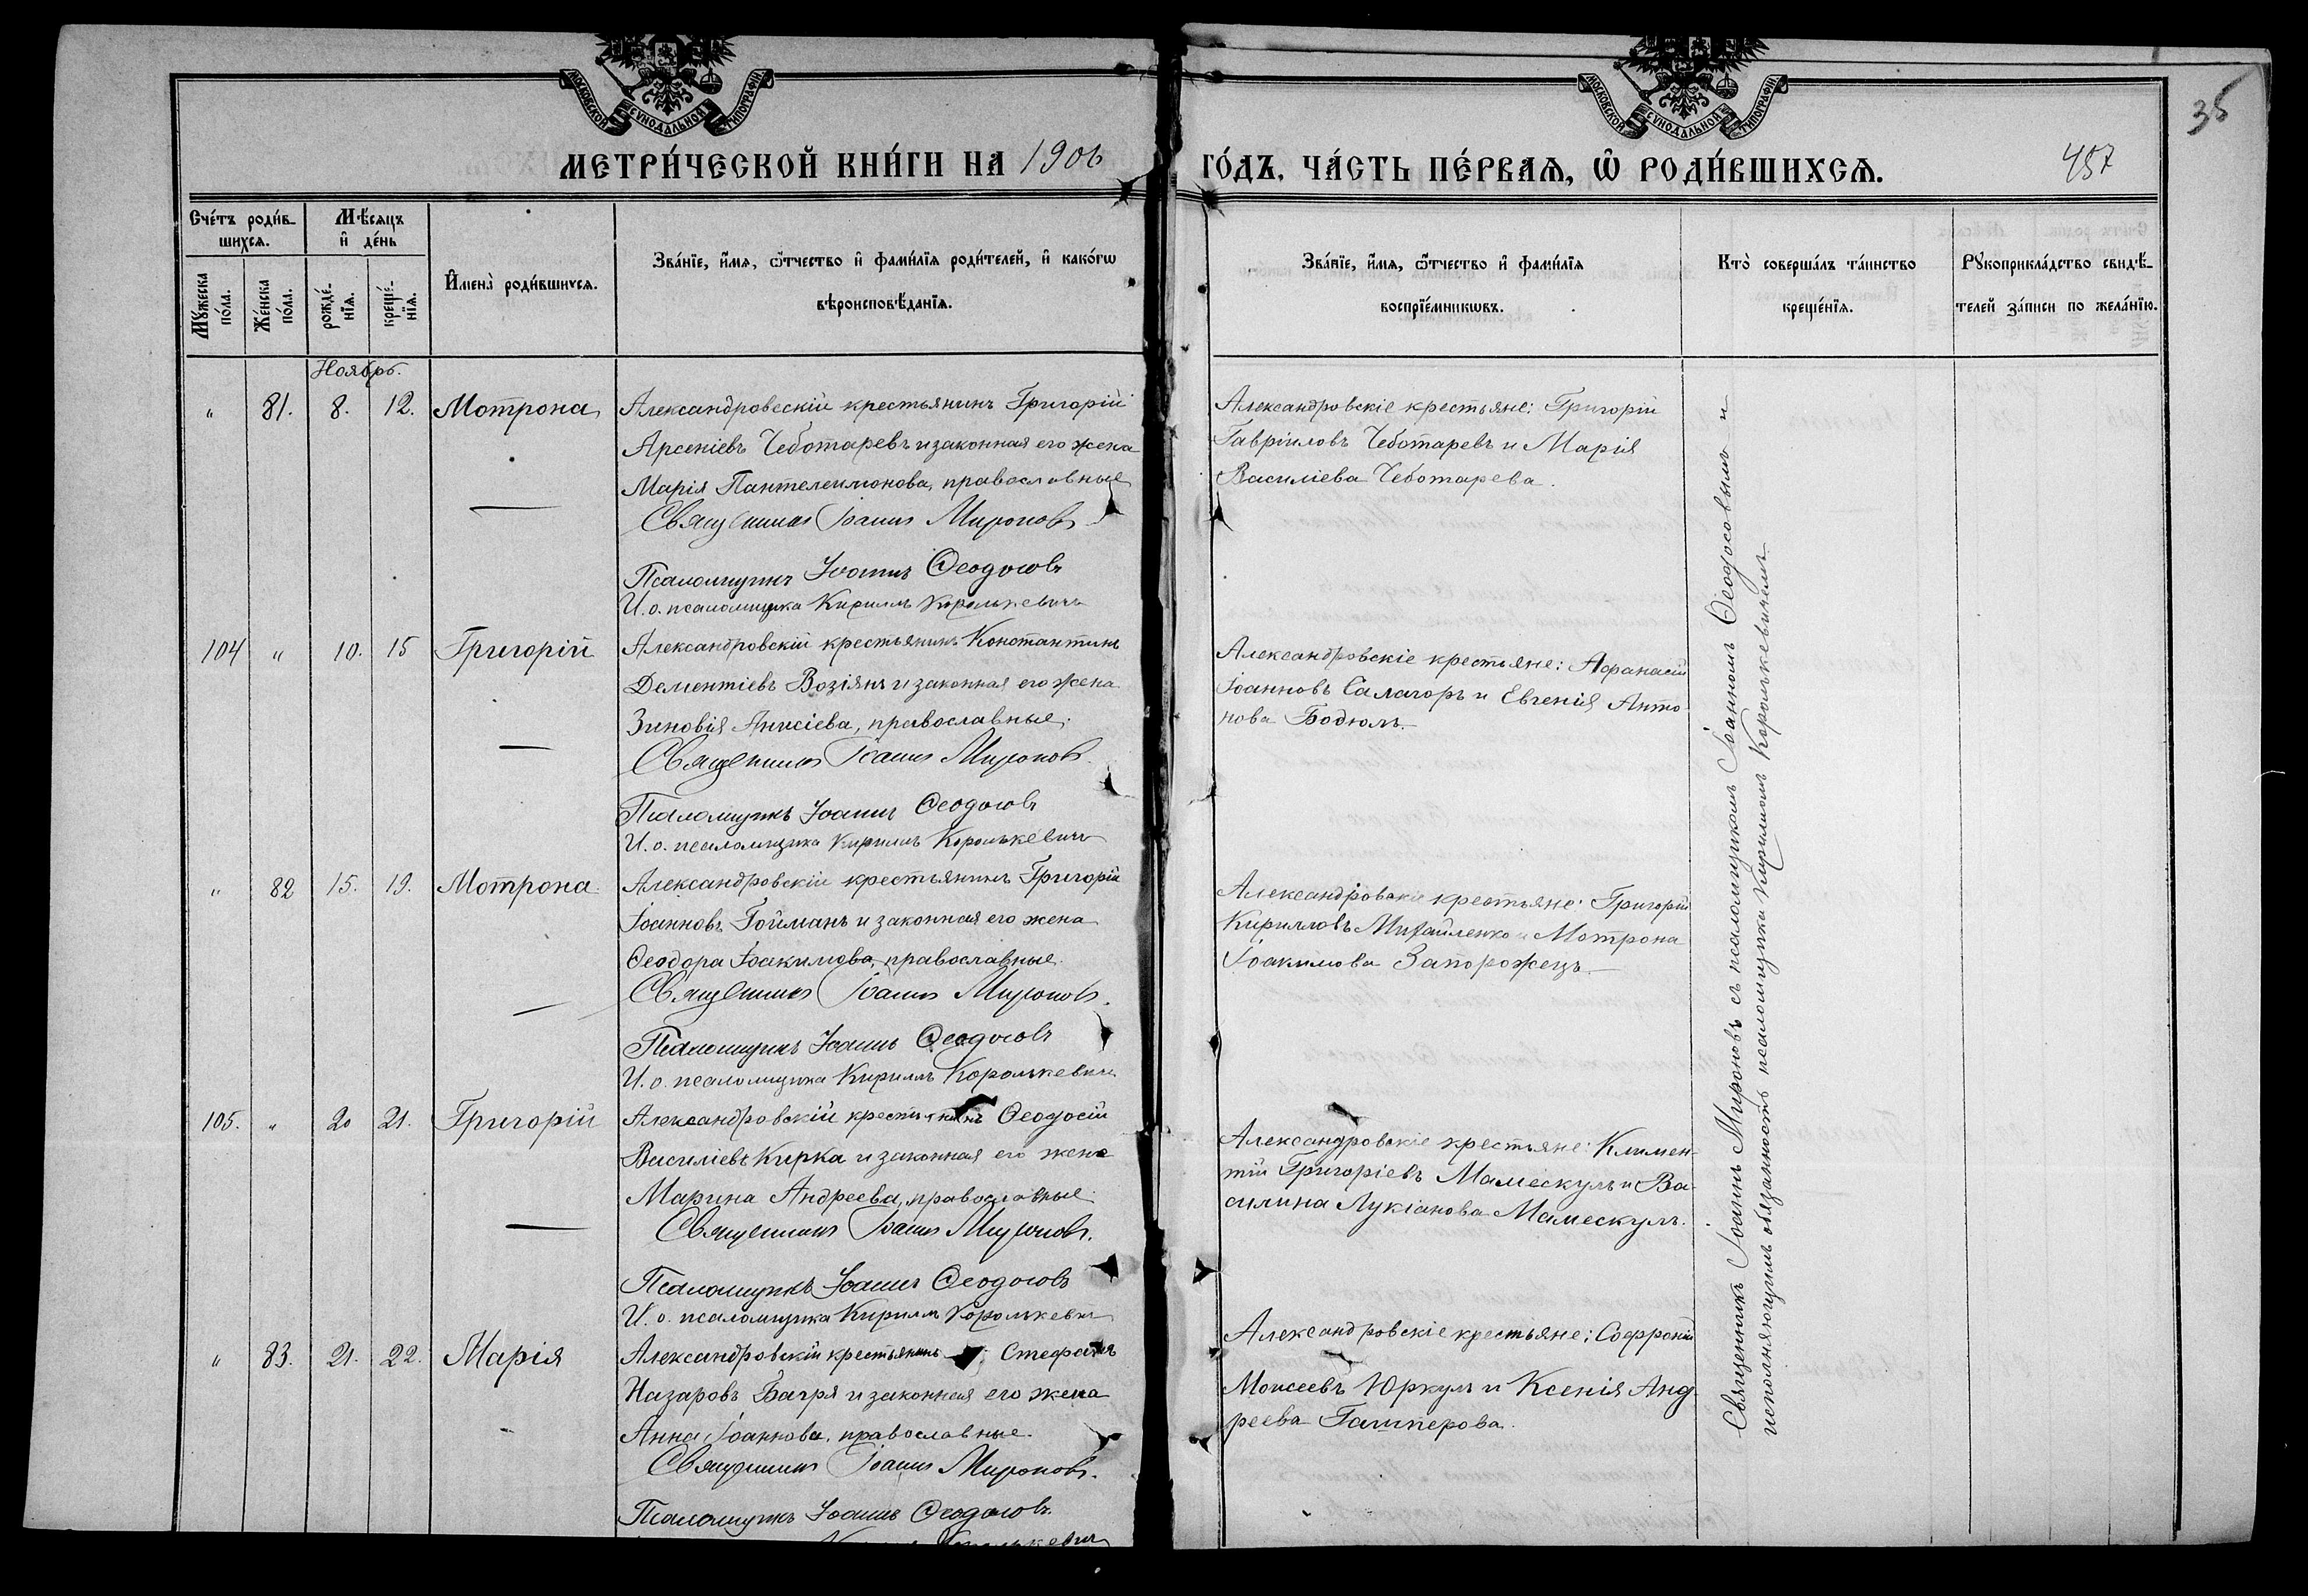 МОСКОВСКОЙ СѴНОДАЛЬНОЙ ТИПОГРАФІИ
МОСКОВСКОЙ СѴНОДАЛЬНОЙ ТИПОГРАФІИ
35
МЕТРИ́ЧЕСКОЙ КНИ́ГИ НА 1906
ГО́ДЪ, ЧА́СТЬ ПЕ́РВАѦ, Ѽ РОДИ́ВШИХСѦ.
457
Сче́тъ роди́в-
шихсѧ.
Мѣ́сѧцъ
и҆ де́нь
Мꙋ́жеска по́ла.
Же́нска по́ла.
рожде́-нїѧ.
креще́-нїѧ.
И҆мена̀ роди́вшихсѧ.
Зва́нїе, и҆́мѧ, ѻ҆́тчество и҆ фами́лїѧ роди́телей, и҆ како́гѡ
вѣроисповѣ́данїѧ.
Зва́нїе, и҆́мѧ, ѻ҆́тчество и҆ фами́лїѧ
воспрїе́мникѡвъ.
Кто̀ соверша́лъ та́инство
креще́нїѧ.
Рꙋкоприкла́дство свидѣ́-
телей за́писи по жела́нїю.
Ноябрь.
" 81. 8. 12. Мотрона
Александровскій крестьянинъ Григорій
Арсеніевъ Чеботаревъ и законная его жена
Марія Пантелеимонова, православные
Священникъ Іоаннъ Мироновъ
Псаломщикъ Іоаннъ Ѳеодосовъ
И. о. псаломщика Кириллъ Королькевичъ
Александровскіе крестьяне: Григорій
Гавріиловъ Чеботаревъ и Марія
Василіева Чеботарева.
104 " 10. 15 Григорій
Александровскій крестьянинъ Константинъ
Дементіевъ Возіянъ и законная его жена
Зиновія Анисіева, православные.
Священникъ Іоаннъ Мироновъ.
Псаломщикъ Іоаннъ Ѳеодосовъ
И. о. псаломщика Кириллъ Королькевичъ
Александровскіе крестьяне: Аѳанасій
Іоанновъ Саламоръ и Евгенія Анто
нова Бодюлъ.
" 82 15. 19. Мотрона.
Александровскій крестьянинъ Григорій
Іоанновъ Гойманъ и законная его жена
Ѳеодора Іоакимова, православные.
Священникъ Іоаннъ Мироновъ.
Псаломщикъ Іоаннъ Ѳеодосовъ
И. о. псаломщика Кириллъ Королькевичъ
Александровскіе крестьяне: Григорій
Кирилловъ Михайленко и Мотрона
Іоакимова Запорожецъ.
105. " 20 21. Григорій
Александровскій крестьянинъ Ѳеодосій
Василіевъ Кирка и законная его жена
Марина Андреева, православные.
Священникъ Іоаннъ Мироновъ.
Псаломщикъ Іоаннъ Ѳеодосовъ
И. о. псаломщика Кириллъ Королькевичъ
Александровскіе крестьяне: Климен-
тій Григоріевъ Мамескулъ и Ва-
силина Лукіанова Мамескулъ.
" 83. 21. 22. Марія
Александровскій крестьянинъ Стефанъ
Назаровъ Багря и законная его жена
Анна Іоаннова, православные.
Священникъ Іоаннъ Мироновъ.
Псаломщикъ Іоаннъ Ѳеодосовъ.
Королькевичъ
Александровскіе крестьяне: Софроній
Моисеевъ Юркулъ и Ксенія Анд
реева Гашперова.
Священникъ Іоаннъ Мироновъ съ псаломщикомъ Іоанномъ Ѳеодосовымъ и
исполняющимъ обязанность псаломщика Кирилломъ Королькевичемъ